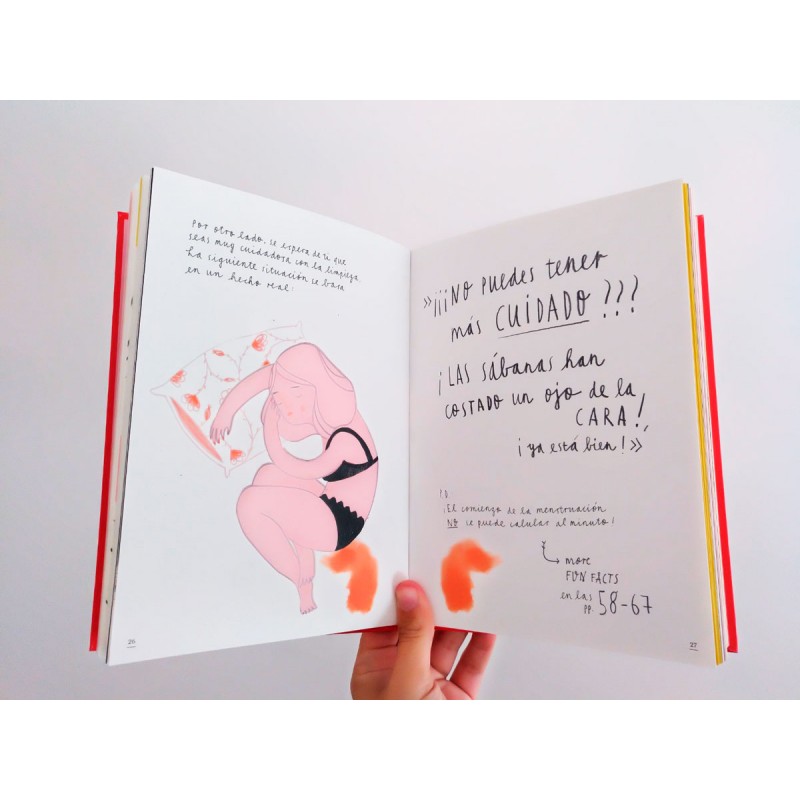 Por otro lado, se espera de ti que
seas muy cuidadosa con la limpieza.
La siguiente situación se basa
en un hecho real:
26
»¡¡¡NO PUEDES TENER
MÁS CUIDADO???
¡LAS SÁBANAS HAN
COSTADO UN OJO DE LA
CARA!,
¡ya está bien!»
P.D.
¡El comienzo de la menstruación
NO se puede calular al minuto!
more
FUN FACTS
en las
pp. 58-67
27